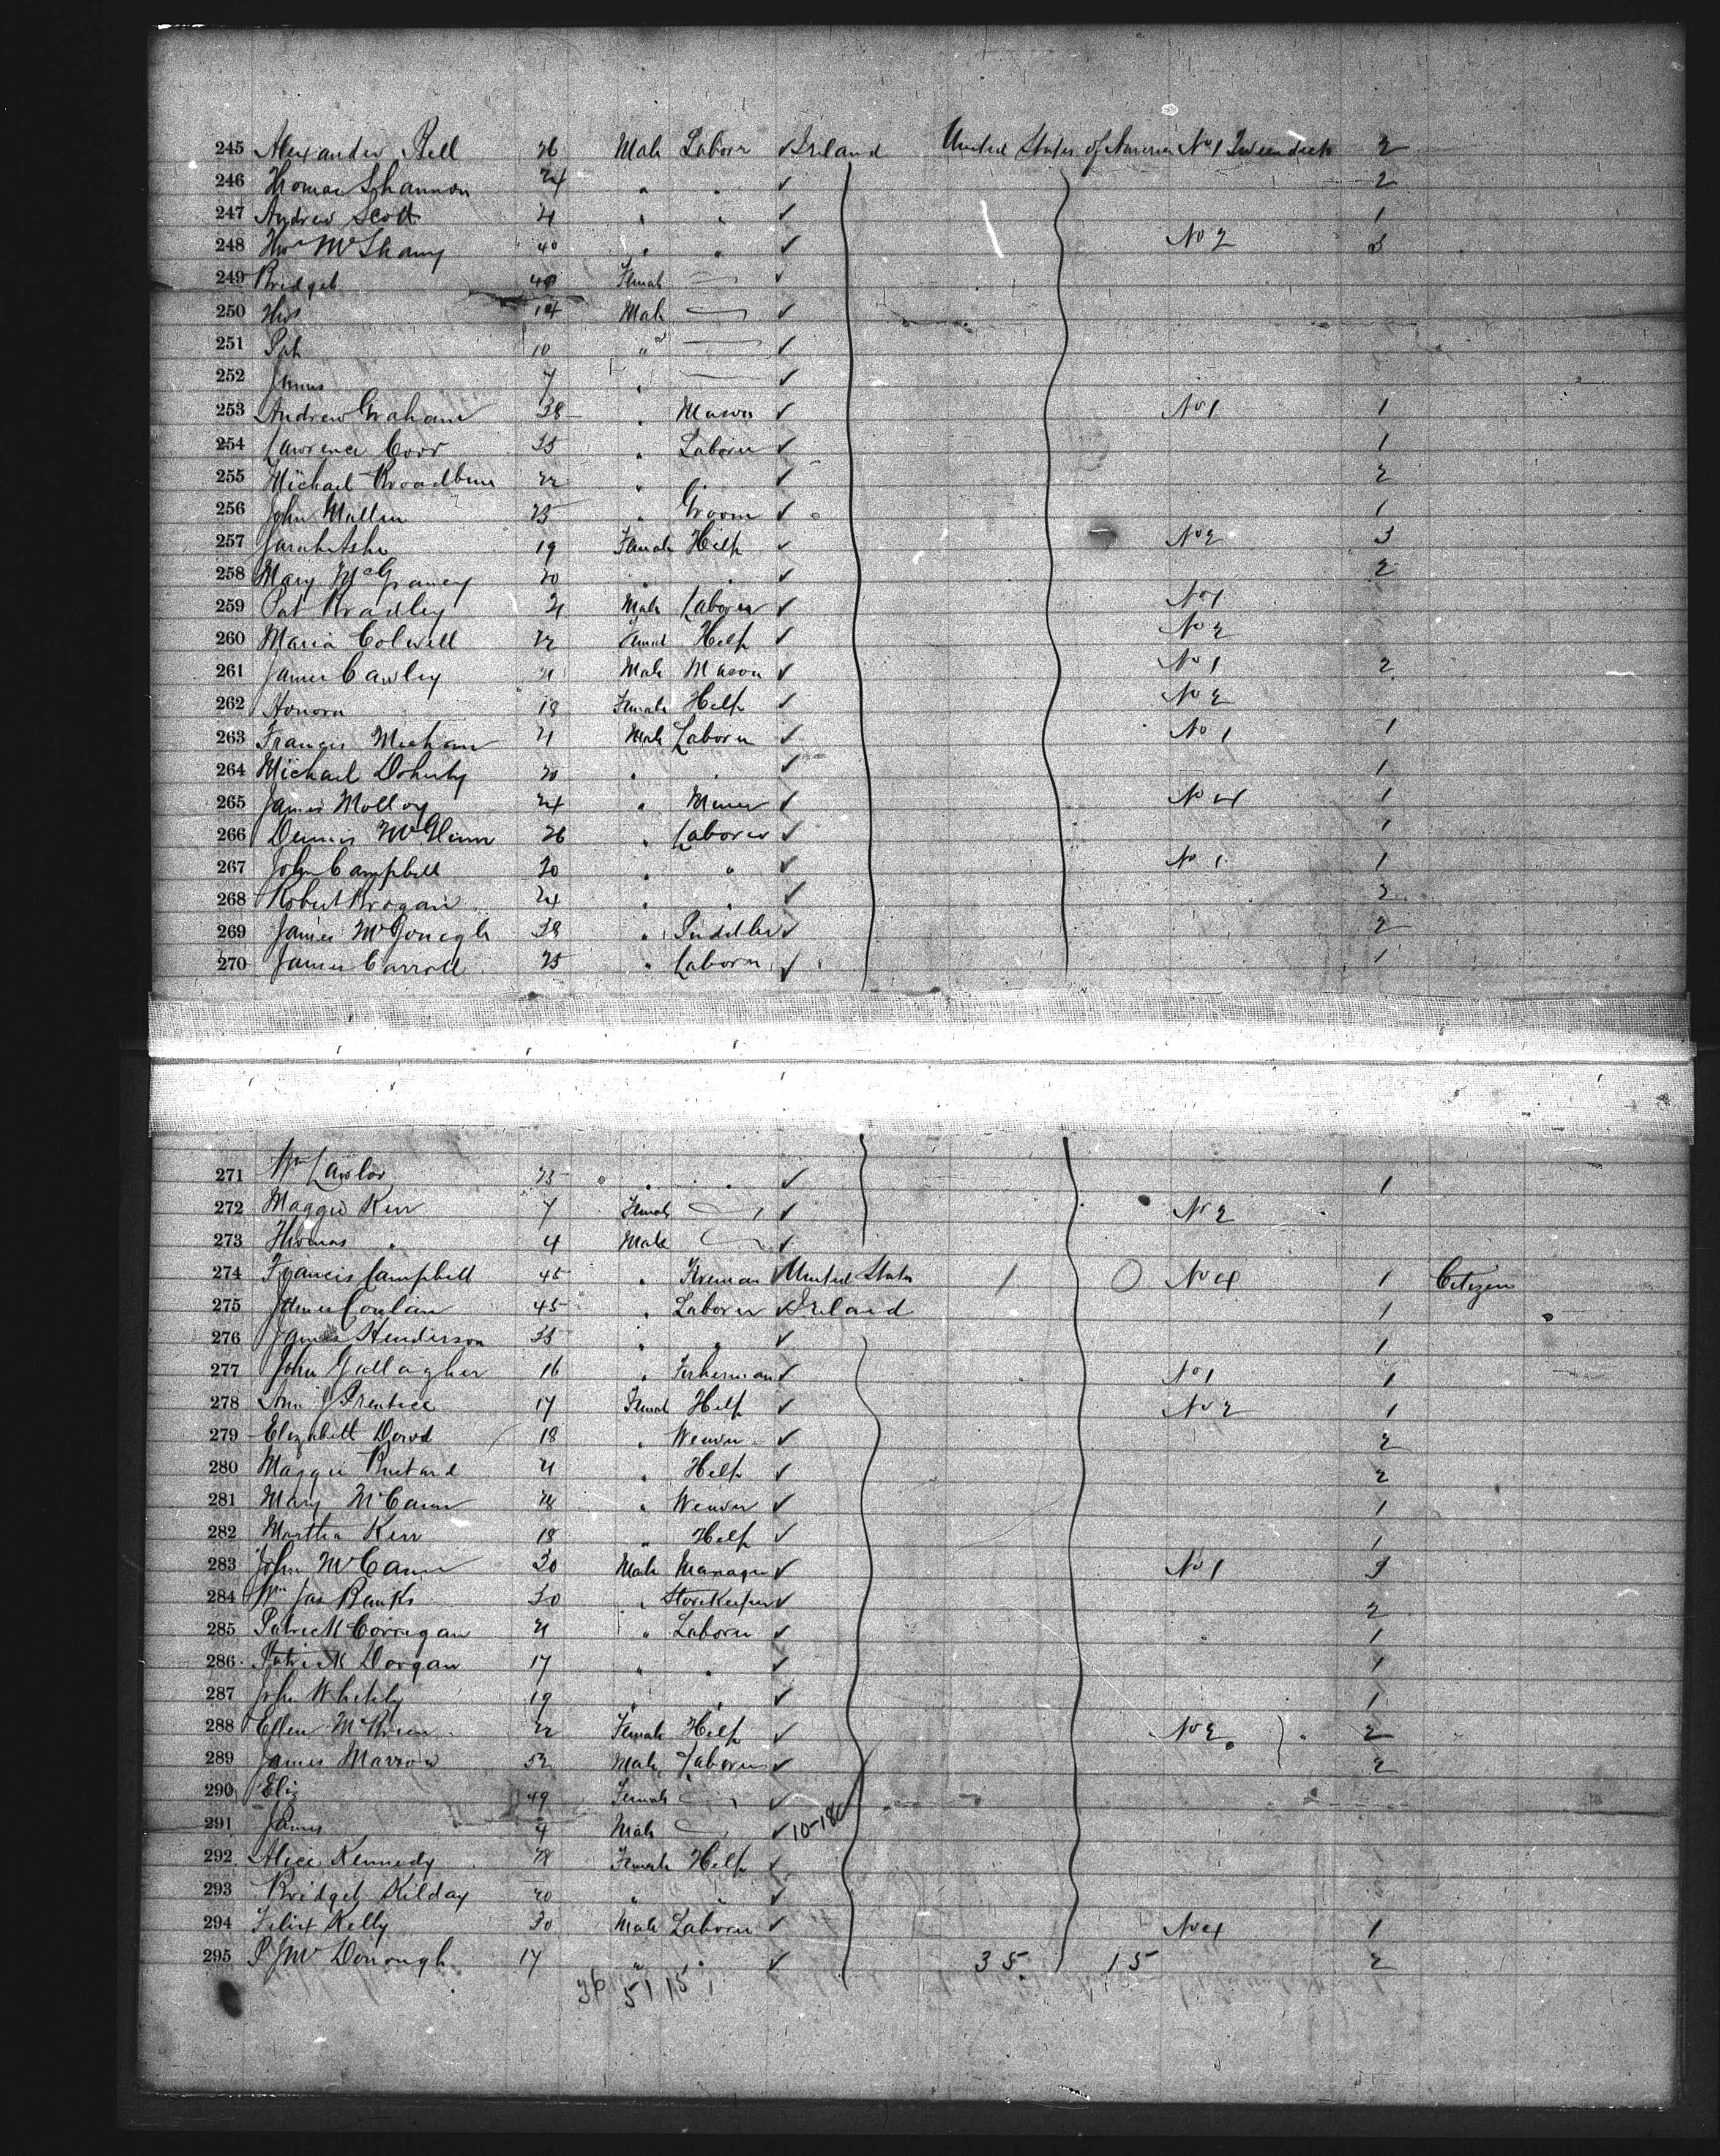 245 Alexander Bell 26 Male Laborr ✓ Ireland United States of America No 1 Tweendeck 2
246 Thomas Shannon 24 " " ✓ 2
247 Andrew Scott 21 " " ✓ 1
248 Thos McShany 40 " " ✓ No 2 3
249 Bridget 40 Female — ✓
250 Thos 14 Male — ✓
251 Pat 10 " — ✓
252 James 7 " — ✓
253 Andrew Graham 38 " Mason ✓ No 1 1
254 Lawrence Corr 35 " Laborer ✓ 1
255 Michael 22 " " ✓ 2
256 John Mullen 25 " Groom ✓ 1
257 Sarah Ashe 19 Female Help ✓ No 2 3
258 Mary 20 " " ✓ 2
259 Pat Bradley 21 Male Laborer ✓ No 1
260 Maria Colwell 22 Female Help ✓ No 2
261 James Cawley 21 Male Mason ✓ No 1 2
262 Honora 18 Female Help ✓ No 2
263 Francis Meehan 21 Male Laborer ✓ No 1 1
264 Michael Doherty 20 " " ✓ 1
265 James Molloy 24 " Miner ✓ No 4 1
266 Dennis McGlinn 26 " Laborer ✓ 1
267 John Campbell 30 " " ✓ No 1 1
268 Robert Brogan 24 " " ✓ 2
269 James McGonegle 38 " Puddler ✓ 2
270 James Carroll 25 " Laborer ✓ 1
271 Wm Lawlor 25 " " ✓ 1
272 Maggie Kerr 7 Female ✓ No 2
273 Thomas " 4 Male ✓
274 Francis Campbell 45 " Fireman ✓ United States 1 0 No 4 1 Citizen
275 James Conlan 45 " Laborer ✓ Ireland 1
276 James Henderson 35 " " ✓ 1
277 John Gallagher 16 " Fisherman ✓ No 1 1
278 Prentice 17 Female Help ✓ No 2 1
279 Elizabeth Dowd 18 " Weaver ✓ 2
280 Maggie 21 " Help ✓ 2
281 Mary McCann 28 " Weaver ✓ 1
282 Martha Kerr 18 " Help ✓ 1
283 John McCann 30 Male Manager ✓ No 1
284 Wm Jas Banks 30 " Storekeeper ✓ 2
285 Patrick Corrigan 21 " Laborer ✓ 1
286 Patrick Dorgan 17 " " ✓ 1
287 John 19 " " ✓ 1
288 Ellen 22 Female Help ✓ No 2 2
289 James Marrow 52 Male Laborer ✓ 2
290 Eliz 49 Female ✓
291 James 4 Male ✓ 10-18
292 Alice Kennedy 28 Female Help ✓
293 Bridget Kilday 20 " " ✓
294 Felix Kelly 30 Male Laborer ✓ No 4 1
295 P J McDonough 17 " " ✓ 35 15 2
36 51 15